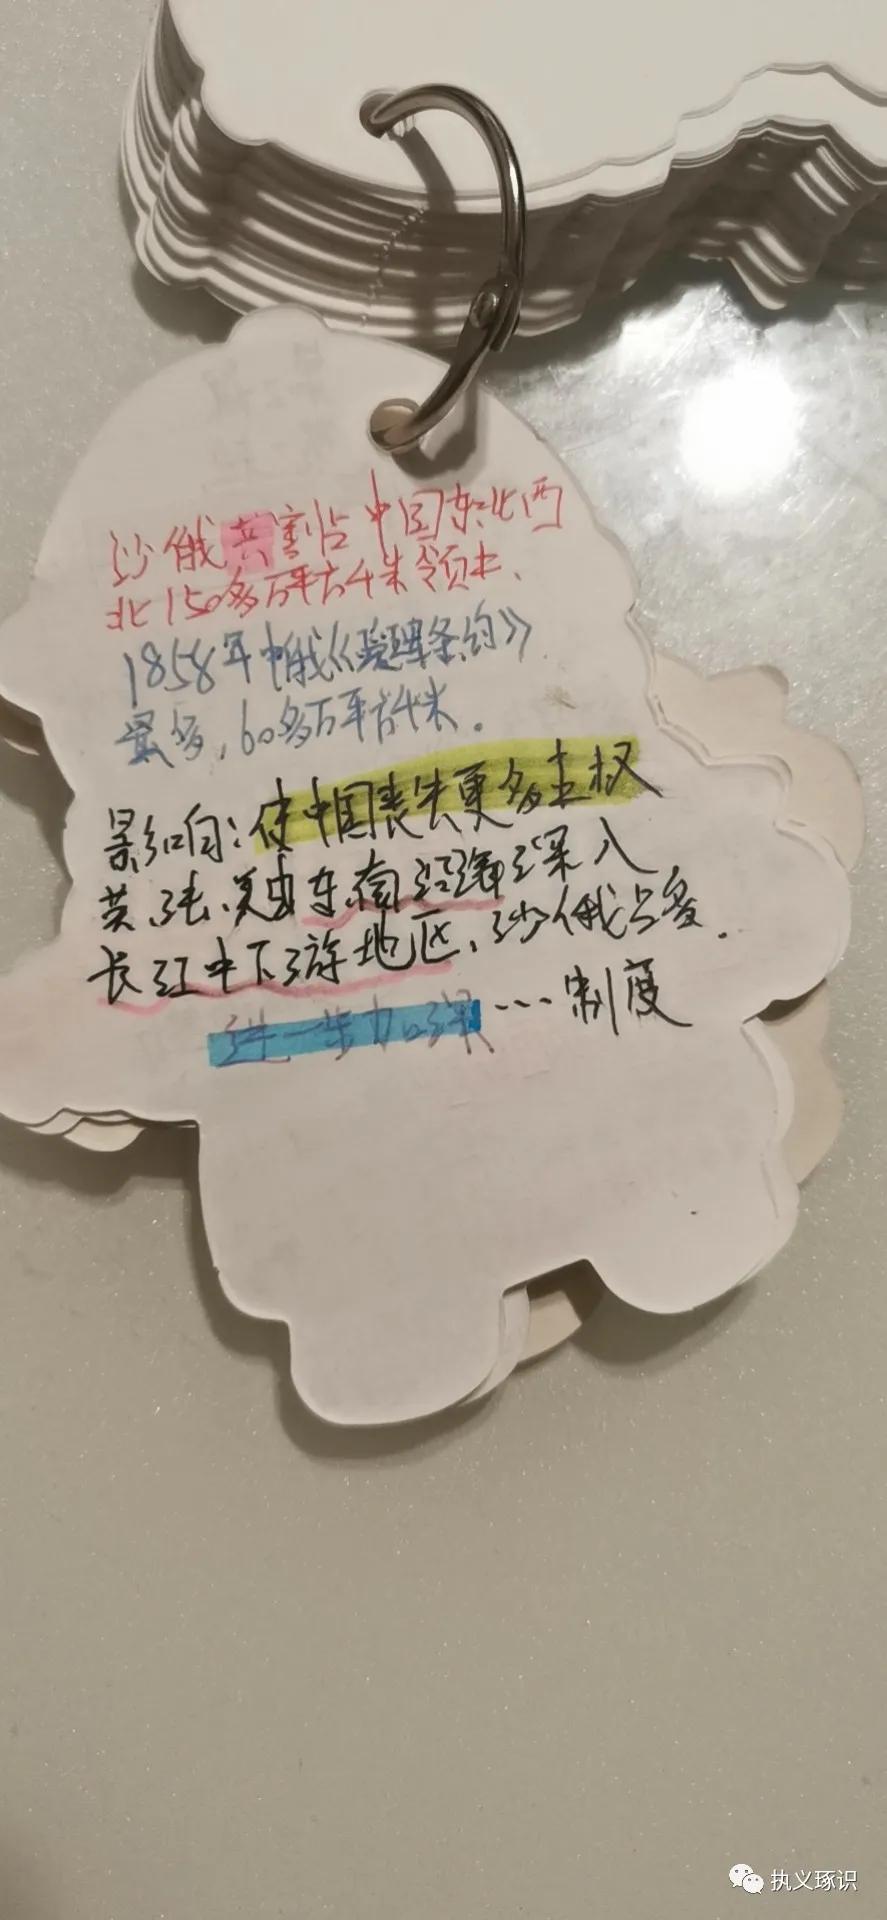 沙俄共割占中国东北西
北150多万平方千米领土、
1858年中俄《瑷珲条约》
最多，60多万平方千米。
影响：使中国丧失更多主权
英、法、美由东南沿海深入
长江中下游地区、沙俄占多.
进一步加深…制度
执义琢识